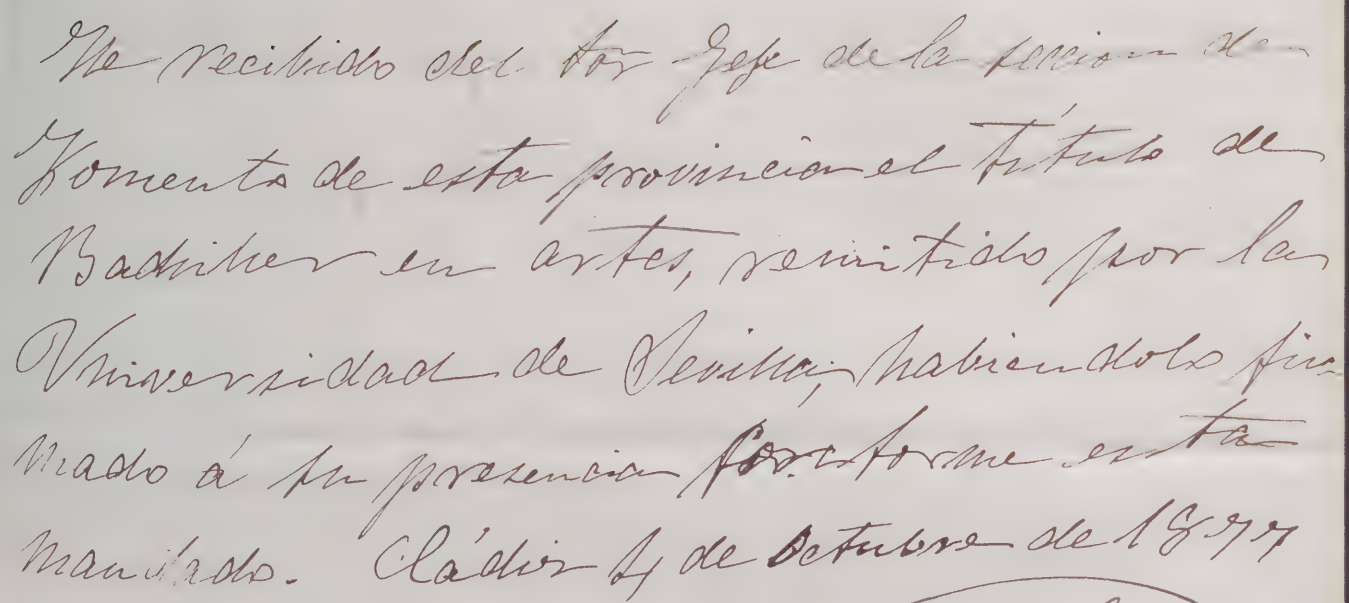 He recibido del Sor Gefe de la seccion de
Fomento de esta provincia el título de
Bachiller en artes, remitido por la
Universidad de Sevilla, habiendolo fir-
mado á su presencia conforme esta
mandado. Cádiz 4 de Octubre de 1877